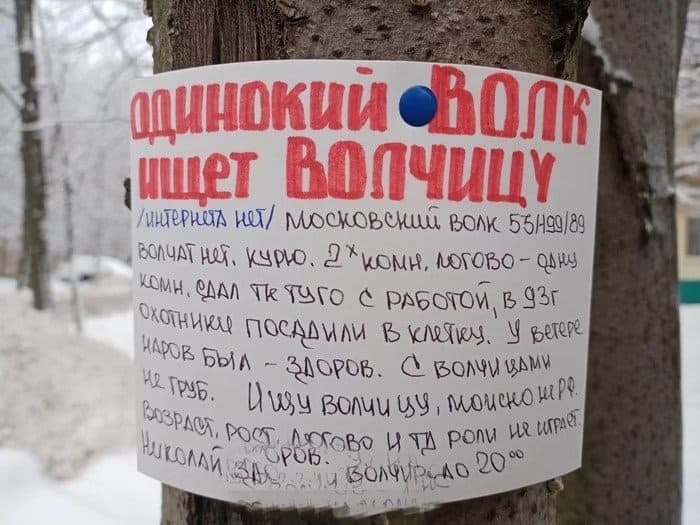 ОДИНОКИЙ ВОЛК
ищет ВОЛЧИЦУ
/ИНТЕРНЕТА НЕТ/ МОСКОВСКИЙ ВОЛК 53/199/89
ВОЛЧАТ НЕТ. КУРЮ. 2х КОМН. ЛОГОВО - ОДНУ
КОМН. СДАЛ ТК ТУГО С РАБОТОЙ, В 93г
ОХОТНИКИ ПОСАДИЛИ В КЛЕТКУ. У ВЕТЕРЕ
НАРОВ БЫЛ - ЗДОРОВ. С ВОЛЧИЦАМИ
НЕ ГРУБ. ИЩУ ВОЛЧИЦУ, МОЖНО НЕ РФ.
ВОЗРАСТ, РОСТ, ЛОГОВО И ТД РОЛИ НЕ ИГРАЕТ.
НИКОЛАЙ ДО 20 00